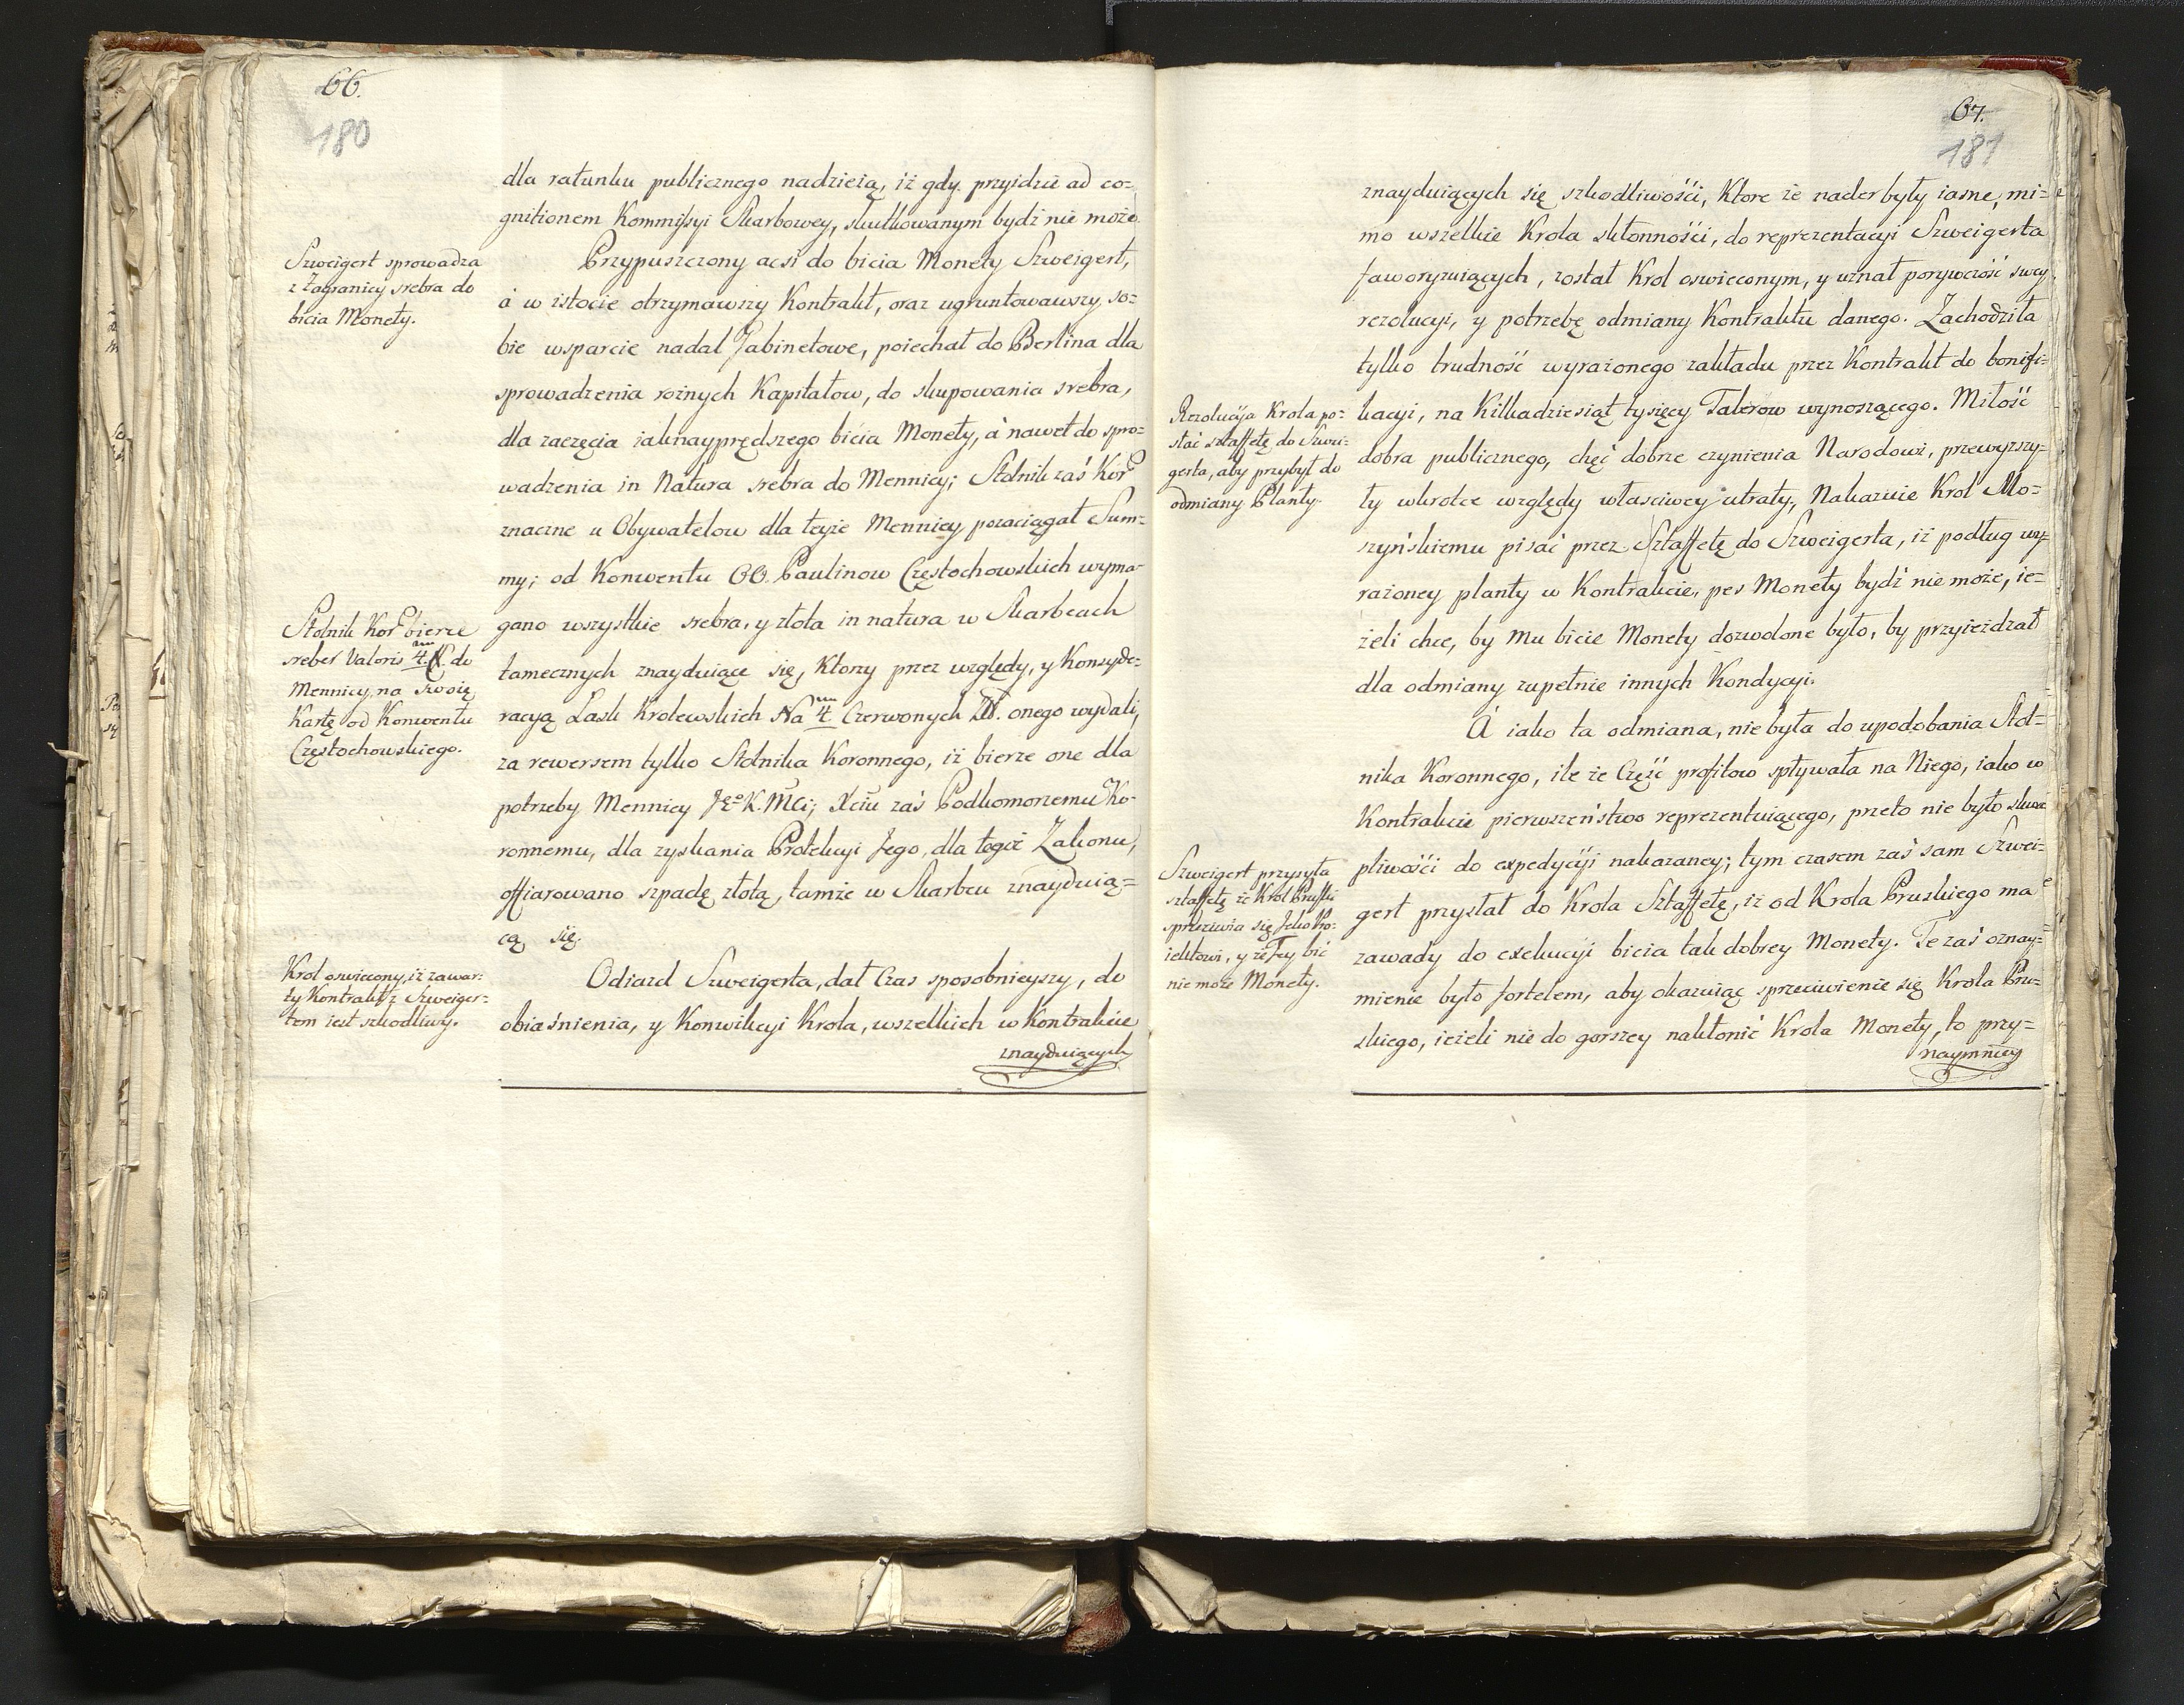 66.
180
dla ratunku publicznego nadzieią, iż gdy przyidzie ad co=
gnitionem Kommissyi Skarbowey, skutkowanym bydź nie może.
Szweigert sprowadza
z Zagranicy srebra do
bicia Monety.
Przypuszczony acsi do bicia Monety Szweigert,
á w istocie otrzymawszy Kontrakt, oraz ugruntowawszy so=
bie wsparcie nadal Gabinetowe, poiechał do Berlina dla
sprowadzenia rożnych Kapitałow, do skupowania srebra,
dla zaczęcia iaknayprędszego bicia Monety, á nawet do spro=
wadzenia in Natura srebra do Mennicy; Stolnik zaś Kor
znaczne u Obywatelow dla teyże Mennicy pozaciągał Sum=
my; od Konwentu OO. Paulinow Częstochowskich wyma=
gano wszystkie srebra, y złota in natura w Skarbcach
Stolnik Kor bierze
sreber Valoris 4. do
Mennicy, na Swoię
Kartę od Konwentu
Częstochowskiego.
tamecznych znayduiące się, Ktorzy przez względy, y Konsyde=
racyą Łask Krolewskich Na 4 Czerwonych Zł. onego wydali,
za rewersem tylko Stolnika Koronnego, iż bierze one dla
potrzeby Mennicy JEo K. Mci; Xciu zaś Podkomorzemu Ko=
ronnemu, dla zyskania Protekcyi Jego, dla tegoż Zakonu,
offiarowano szpadę złotą, tamże w Skarbcu znayduią=
cą się.
Krol oswiecony, iż zawar=
ty Kontrakt z Szweiger=
tem iest szkodliwy.
Odiazd Szweigerta, dał Czas sposobnieyszy, do
obiaśnienia, y Konwikcyi Krola, wszelkich w Kontrakcie
znayduiących
67.
181
znayduiących się szkodliwośći, Ktore że nader były iasne, mi=
mo wszelkie Krola skłonnośći, do reprezentacyi Szweigerta
faworyzuiących, został Krol oswieconym, y uznał porywczość swey
rezolucyi, y potrzebę odmiany Kontraktu danego. Zachodziła
tylko trudność wyrażonego zakładu przez Kontrakt do bonifi=
kacyi, na Kilkadziesiąt tysięcy Talerow wynoszącego. Miłość
Rezolucyja Krola po=
słać sztaffetę do Szwei=
gerta, aby przybył do
odmiany Planty.
dobra publicznego, chęć dobrze czynienia Narodowi, przewyższy=
ły wkrotce względy własciwey utraty, Nakazuie Krol Mo=
szyńskiemu pisać przez Sztaffetę do Szweigerta, iż podług wy=
rażoney planty w Kontrakcie, pes Monety bydź nie może, ie=
żeli chce, by mu bicie Monety dozwolone było, by przyieżdzał
dla odmiany zupełnie innych Kondycyi.
Á iako ta odmiana, nie była do upodobania Stol=
nika Koronnego, ile że Część profitow spływała na Niego, iako w
Kontrakcie pierwszeństwo reprezentuiącego, przeto nie było skwa
pliwośći do expedycyi nakazaney; tym czasem zaś sam Szwei=
Szweigert przysyła
sztaffetę że Krol Pruski
sprzeciwia się Jeho Pro=
iektowi, y że Tey bić
nie może Monety.
gert przysłał do Krola Sztaffetę, iż od Krola Pruskiego ma
zawady do exekucyi bicia tak dobrey Monety. Te zaś oznay=
mienie było fortelem, aby okazuiąc sprzeciwienie się Krola Pru=
skiego, ieżeli nie do gorszey nakłonić Krola Monety, to przy=
naymniey